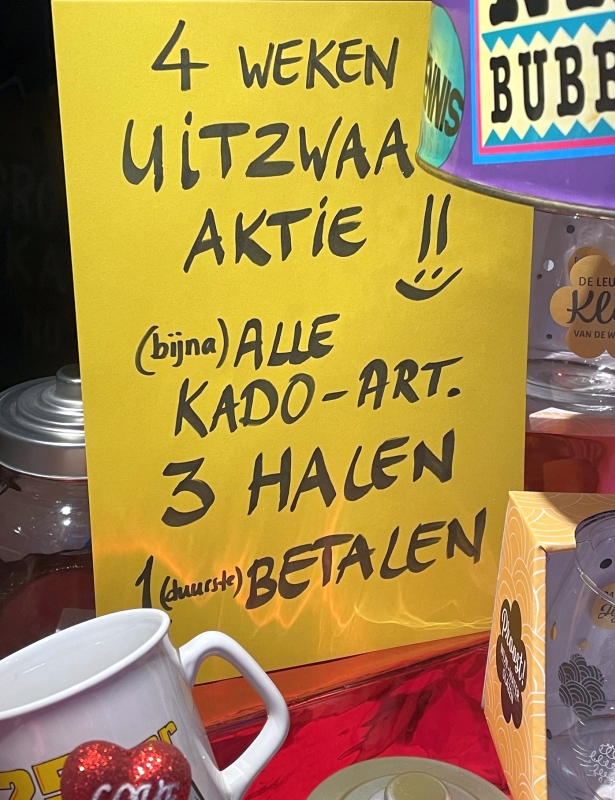 4 WEKEN
UiTZWAA
AKTiE !!
(bijna) ALLE
KADO-ART.
3 HALEN
1 (duurste) BETALEN
NNIS
BUBB
DE LEU
VAN DE W
25
LOVE